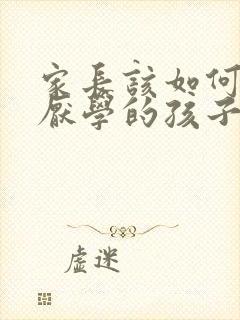 家長該如何
厭學的孩子
虛迷